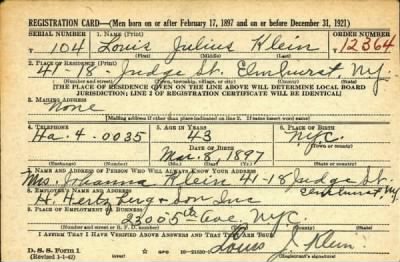 REGISTRATION CARD—(Men born on or after February 17, 1897 and on or before December 31, 1921)
SERIAL NUMBER 1. NAME (Print) ORDER NUMBER
T 104 Louis Julius Klein 12364
(First) (Middle) (Last)
2. PLACE OF RESIDENCE (Print)
41-18-Judge St. Elmhurst NY
(Number and street) (Town, township, village, or city) (County) (State)
[THE PLACE OF RESIDENCE GIVEN ON THE LINE ABOVE WILL DETERMINE LOCAL BOARD
JURISDICTION; LINE 2 OF REGISTRATION CERTIFICATE WILL BE IDENTICAL]
3. MAILING ADDRESS
None
[Mailing address if other than place indicated on line 2. If same insert word same]
4. TELEPHONE 5. AGE IN YEARS 6. PLACE OF BIRTH
Ha. 4-0035 43 NYC.
DATE OF BIRTH (Town or county)
Mar. 8 1897
(Exchange) (Number) (Mo.) (Day) (Yr.) (State or country)
7. NAME AND ADDRESS OF PERSON WHO WILL ALWAYS KNOW YOUR ADDRESS
Mrs Johanna Klein 41-18 Judge St
Elmhurst NY
8. EMPLOYER'S NAME AND ADDRESS
H. Hertzberg & Son Inc
9. PLACE OF EMPLOYMENT OR BUSINESS
230 5th Ave. NYC.
(Number and street or R. F. D. number) (Town) (County) (State)
I AFFIRM THAT I HAVE VERIFIED ABOVE ANSWERS AND THAT THEY ARE TRUE
D. S. S. Form 1
(Revised 1-1-42) (over)
Louis J. Klein
(Registrant's signature)